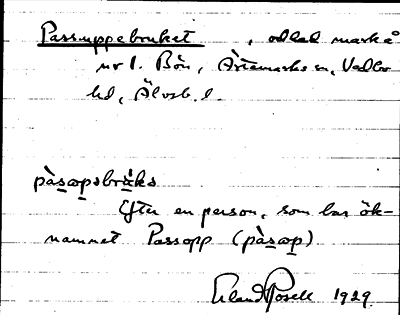 Passuppebruket , odlad mark å
nr 1. Bön, Ärtemarks sn, Vedbo
hd, Älvsb. l.
pàsapsbråks
Efter en person, som bar ök-
namnet Passopp (pàsap)
Erland Rosell 1929